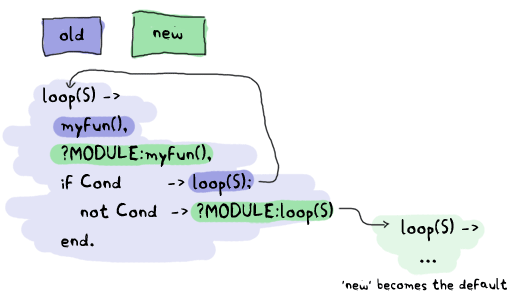 old
new
loop(S) ->
myFun(),
?MODULE:myFun(),
if Cond -> loop(S);
not Cond -> ?MODULE:loop(S)
end.
loop(S) ->
...
'new' becomes the default